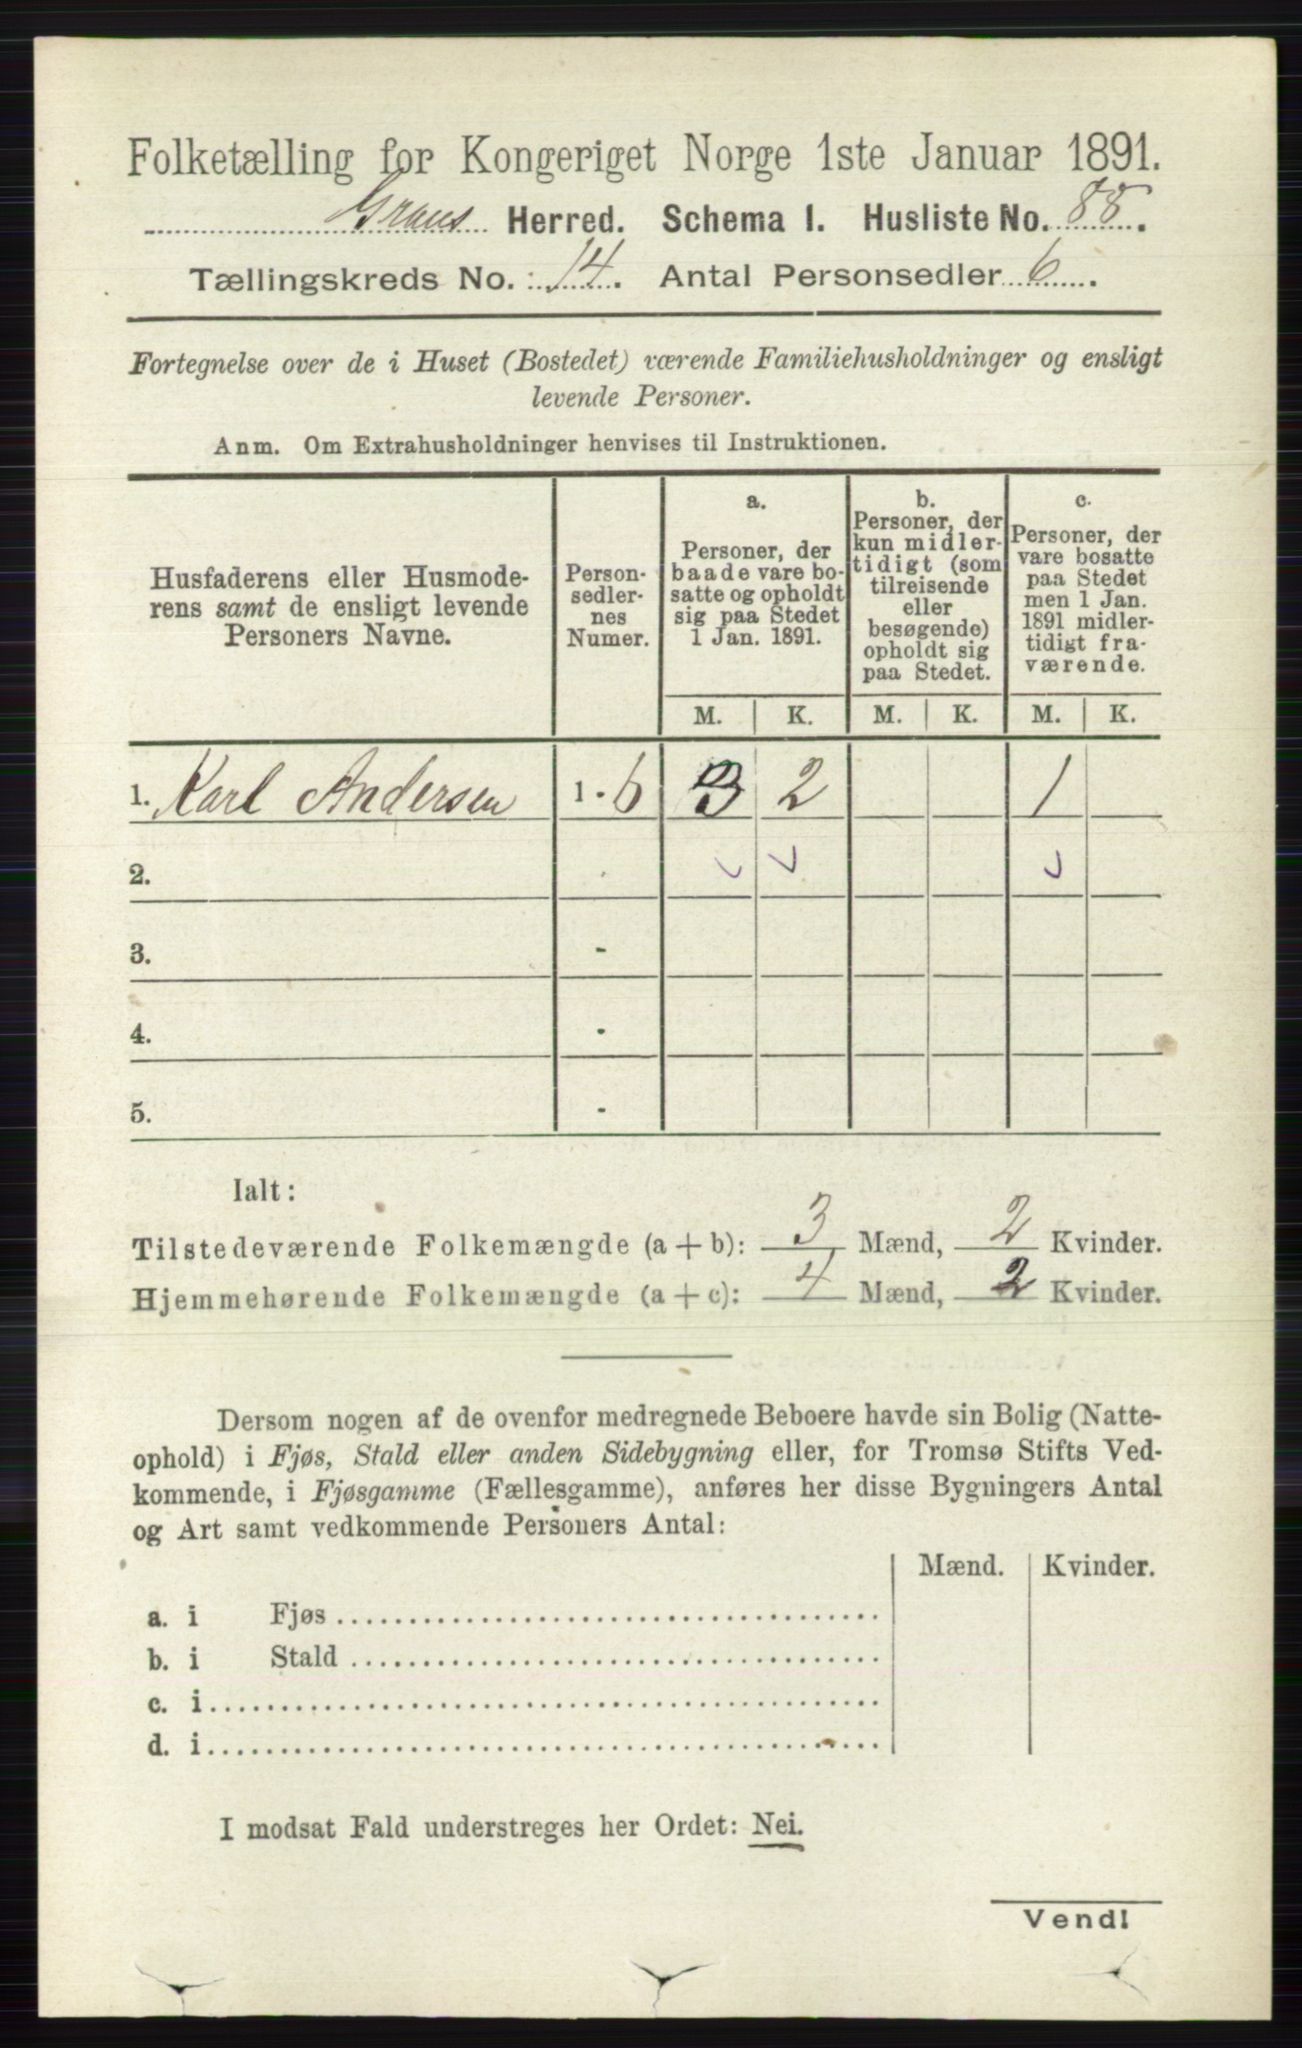 Folketælling for Kongeriget Norge 1ste Januar 1891.
Grans Herred. Schema 1. Husliste No. 88.
Tællingskreds No. 14. Antal Personsedler 6.
Fortegnelse over de i Huset (Bostedet) værende Familiehusholdninger og ensligt
levende Personer.
Anm. Om Extrahusholdninger henvises til Instruktionen.
Husfaderens eller Husmode-
rens samt de ensligt levende
Personers Navne.
Person-
sedler-
nes
Numer.
a.
Personer, der
baade vare bo-
satte og opholdt
sig paa Stedet
1 Jan. 1891.
b.
Personer, der
kun midler-
tidigt (som
tilreisende
eller
besøgende)
opholdt sig
paa Stedet.
c.
Personer, der
vare bosatte
paa Stedet
men 1 Jan.
1891 midler-
tidigt fra-
værende.
M. K. M. K. M. K.
1. Karl Andersen 1 - 6 3 2 1
2.
3. -
4. -
5. -
Ialt:
Tilstedeværende Folkemængde (a + b): 3 Mænd, 2 Kvinder.
Hjemmehørende Folkemængde (a + c): 4 Mænd, 2 Kvinder.
Dersom nogen af de ovenfor medregnede Beboere havde sin Bolig (Natte-
ophold) i Fjøs, Stald eller anden Sidebygning eller, for Tromsø Stifts Ved-
kommende, i Fjøsgamme (Fællesgamme), anføres her disse Bygningers Antal
og Art samt vedkommende Personers Antal:
Mænd. Kvinder.
a. i Fjøs
b. i Stald
c. i
d. i
I modsat Fald understreges her Ordet: Nei.
Vend!